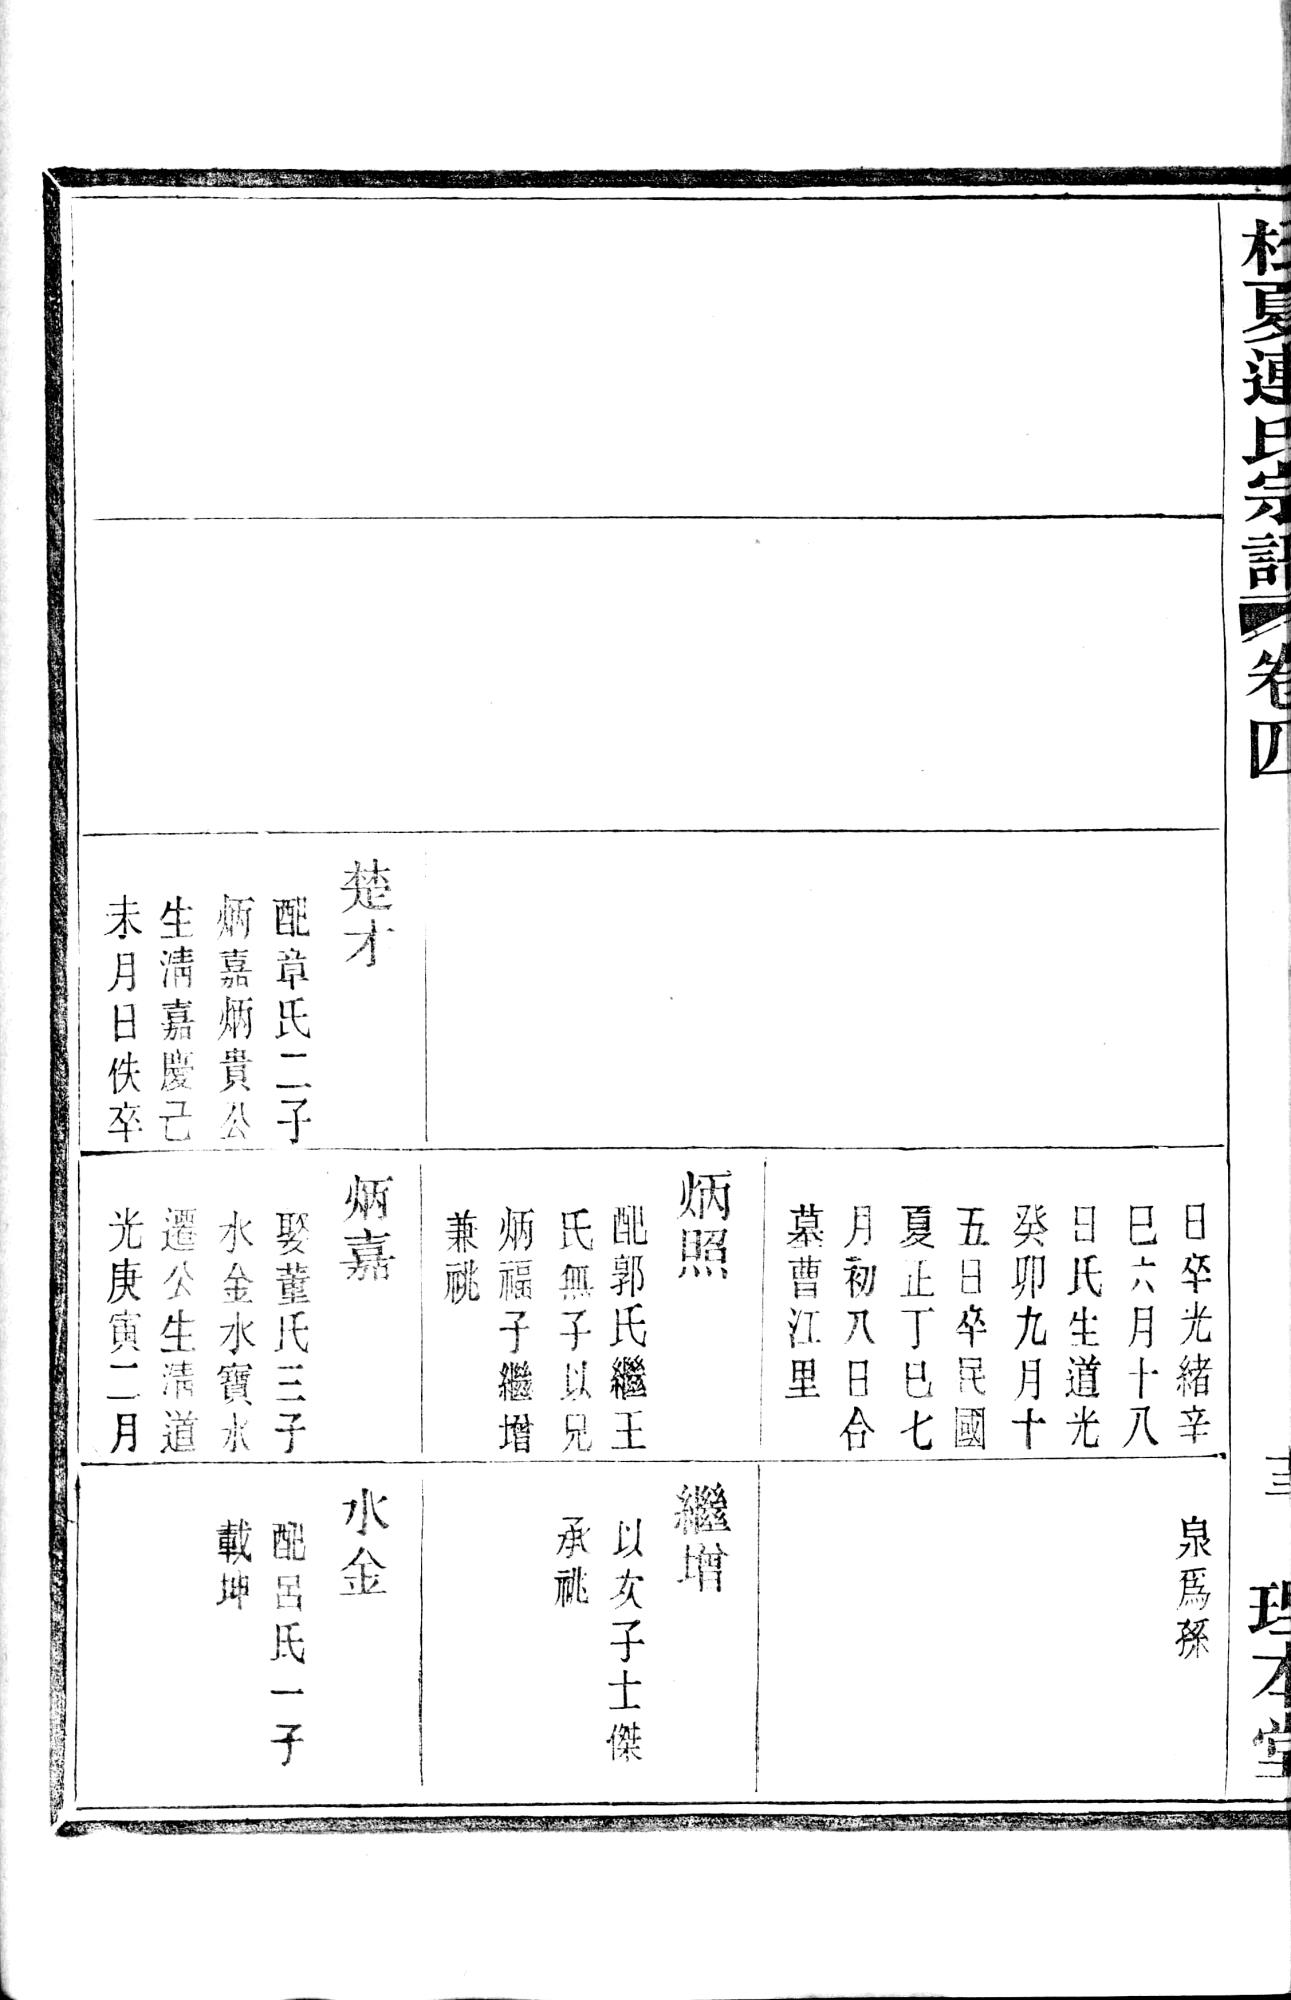 桂夏連氏宗譜
卷四
理本堂
楚才
配章氏二子
炳嘉炳貴公
生淸嘉慶己
未月日佚卒
日卒光緒辛
巳六月十八
日氏生道光
癸卯九月十
五日卒民國
夏正丁巳七
月初八日合
墓曹江里
炳照
配郭氏繼王
氏無子以兄
炳福子繼增
兼祧
炳嘉
娶董氏三子
水金水寶水
遷公生淸道
光庚寅二月
泉爲孫
繼增
以女子士傑
承祧
水金
配呂氏一子
載坤